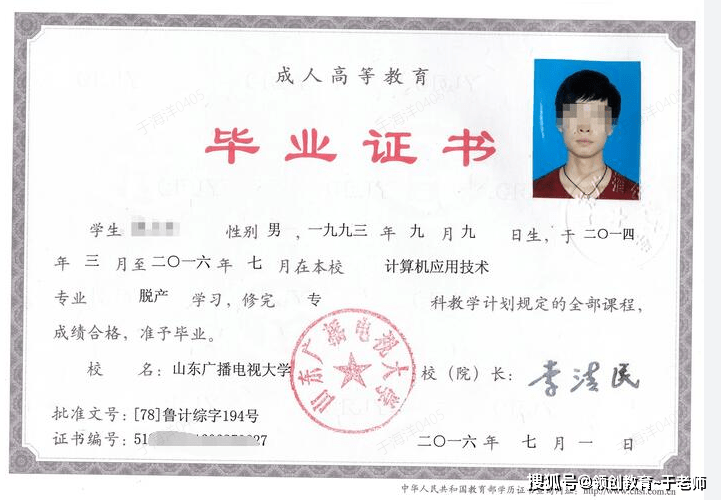 成人高等教育
毕业证书
学生 性别 男 ，一九九三 年 九 月 九 日生，于 二〇一四
年 三 月至 二〇一六 年 七 月在本校 计算机应用技术
专业 脱产 学习，修完 专 科教学计划规定的全部课程，
成绩合格，准予毕业。
校 名：山东广播电视大学
山东广播电视大学
校（院）长：李清民
批准文号：[78]鲁计综字194号
证书编号：51
二〇一六 年 七 月 一 日
中华人民共和国教育部学历证书查询网址：http://www.chsi.com.cn
搜狐号@领创教育-于老师